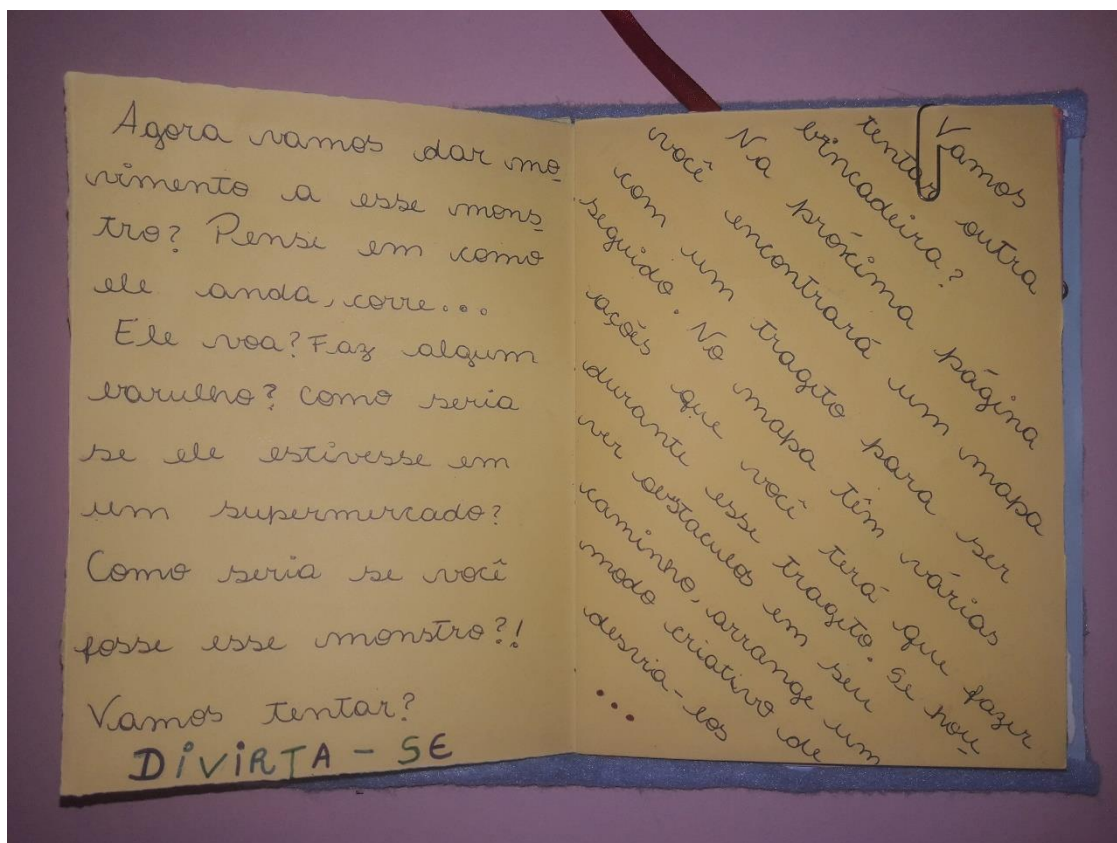 Agora vamos dar mo-
vimento a esse mons-
tro? Pense em como
ele anda, corre...
Ele voa? Faz algum
barulho? Como seria
se ele estivesse em
um supermercado?
Como seria se você
fosse esse monstro?!
Vamos tentar?
DiViRTA-SE
Vamos
tentar outra
brincadeira?
Na próxima página
você encontrará um mapa
com um tragito para ser
seguido. No mapa têm várias
ações que você terá que fazer
durante esse tragito. Se hou-
ver obstaculos em seu
caminho, arrange um
modo criativo de
desvia-los
...